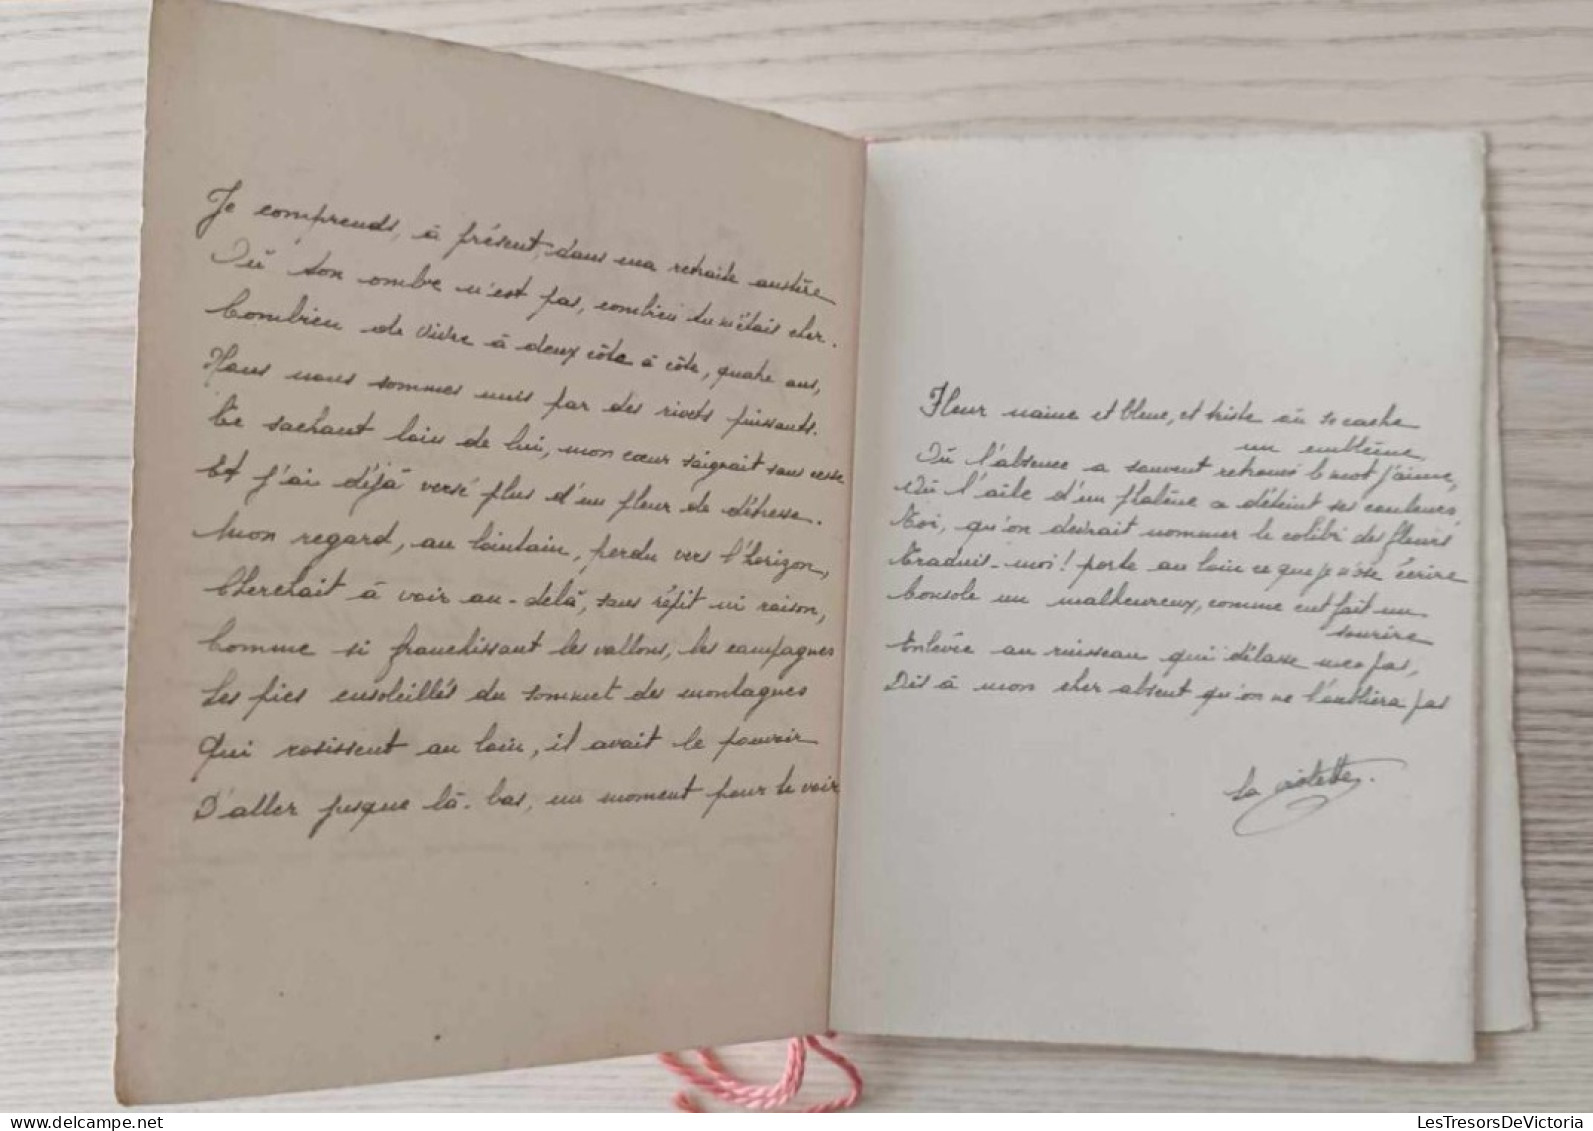 Je comprends, à présent, dans ma retraite austère
Où ton ombre n'est pas, combien tu m'étais cher.
Combien de vivre à deux côte à côte, quatre ans,
Nous nous sommes unis par des rivets puissants.
Te sachant loin de lui, mon cœur saignait sans cesse
Et j'ai déjà versé plus d'un pleur de détresse.
Mon regard, au lointain, perdu vers l'horizon,
Cherchait à voir au-delà, sans répit ni raison,
Comme si franchissant les vallons, les campagnes
Les pics ensoleillés du sommet des montagnes
Qui rosissent au loin, il avait le pouvoir
D'aller jusque là-bas, un moment pour te voir
Fleur naine et bleue, et triste où se cache
un emblème,
Où l'absence a souvent retrouvé le mot j'aime,
Où l'aile d'un phalène a déteint ses couleurs,
Toi, qu'on devrait nommer le colibri des fleurs
Traduis-moi! porte au loin ce que je n'ose écrire
Console un malheureux, comme eut fait un
sourire
Enlevée au ruisseau qui délasse mes pas,
Dis à mon cher absent qu'on ne l'oubliera pas
La violette.
LesTresorsDeVictoria